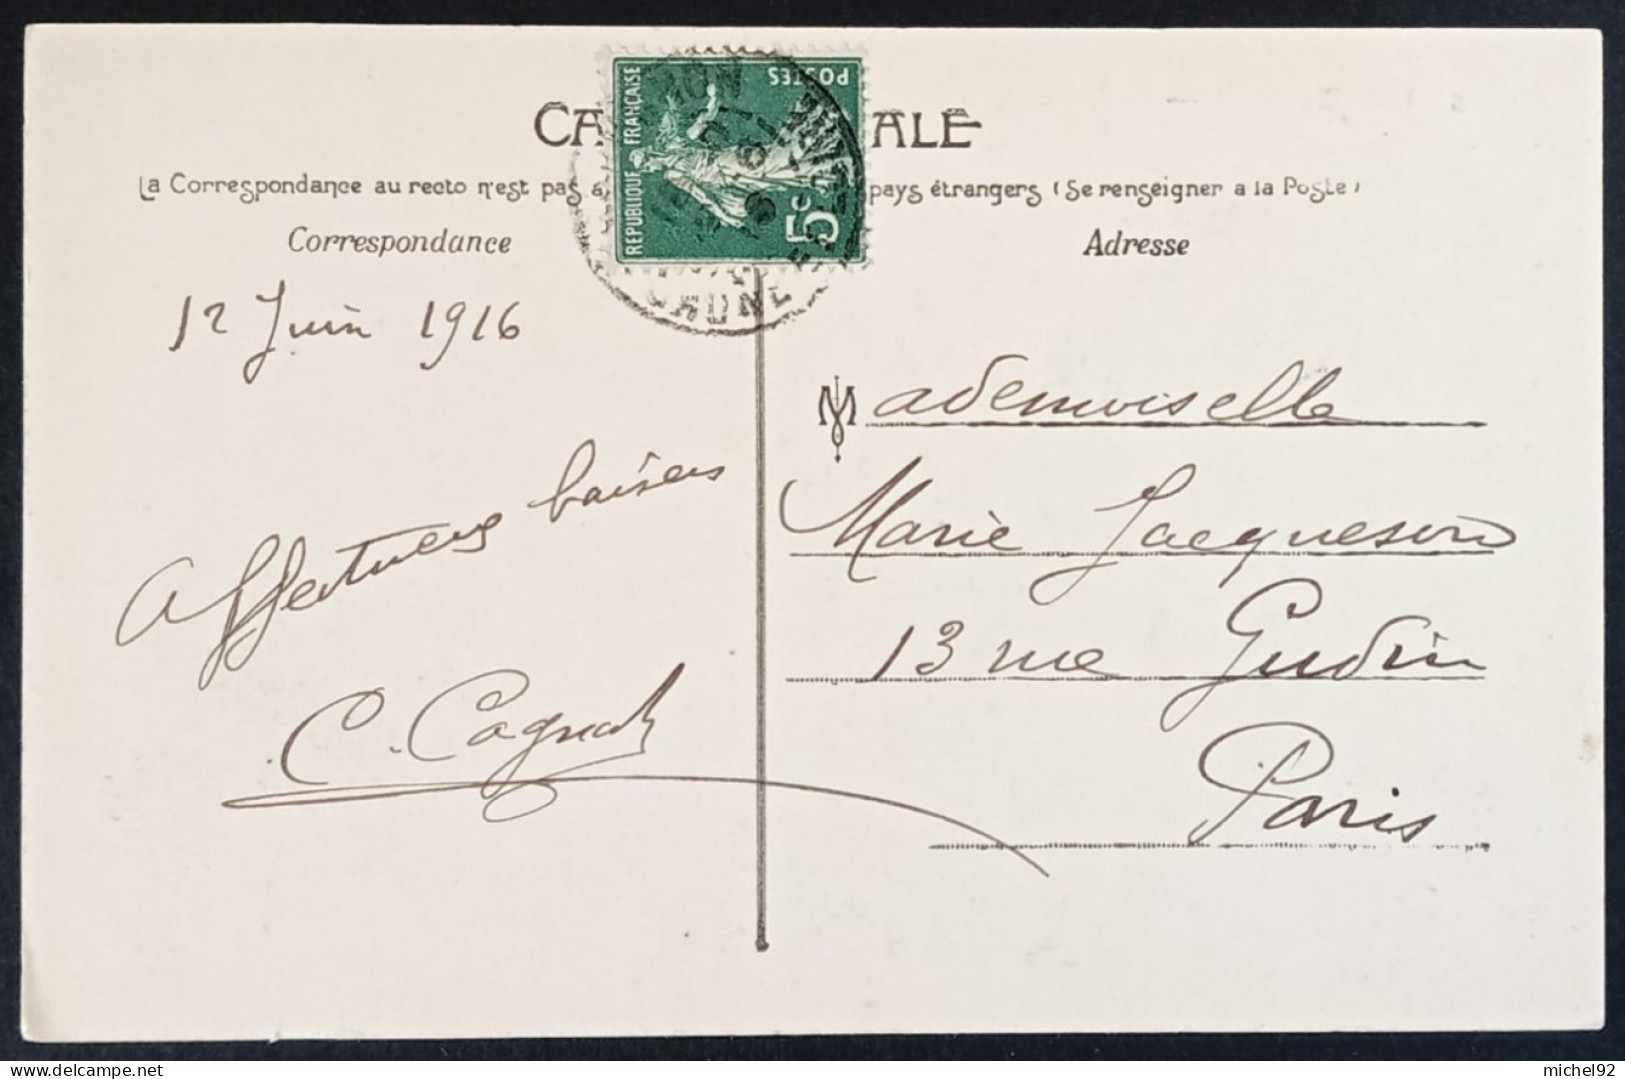 CA ALE
La Correspondance au recto n'est pas a pays étrangers (Se renseigner a la Poste)
Correspondance
Adresse
RÉPUBLIQUE FRANÇAISE
POSTES
5c
12 Juin 1916
Affectueux baisers
C. Cagnat
Mademoiselle
Marie Jacqueson
13 rue Gudin
Paris
michel92